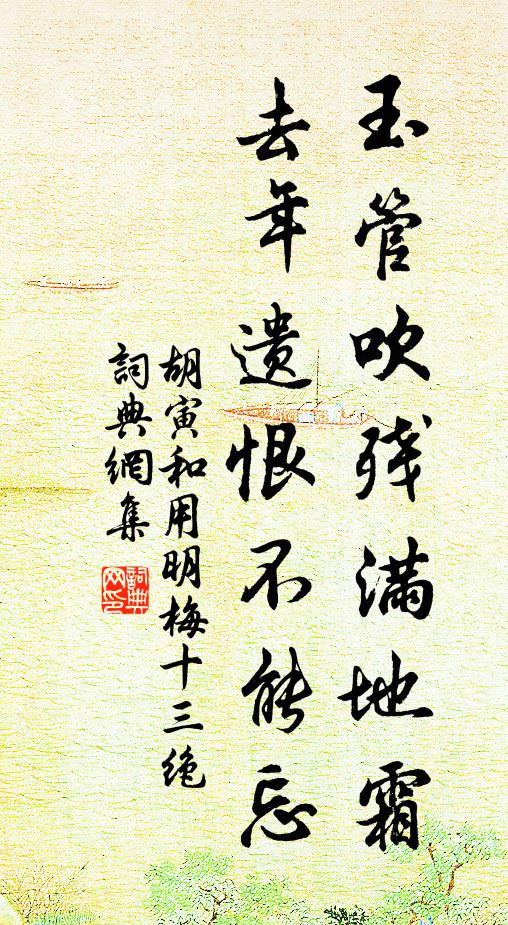 玉管吹残满地霜
去年遗恨不能忘
胡寅和用明梅十三绝
詞典網集
詞典网印